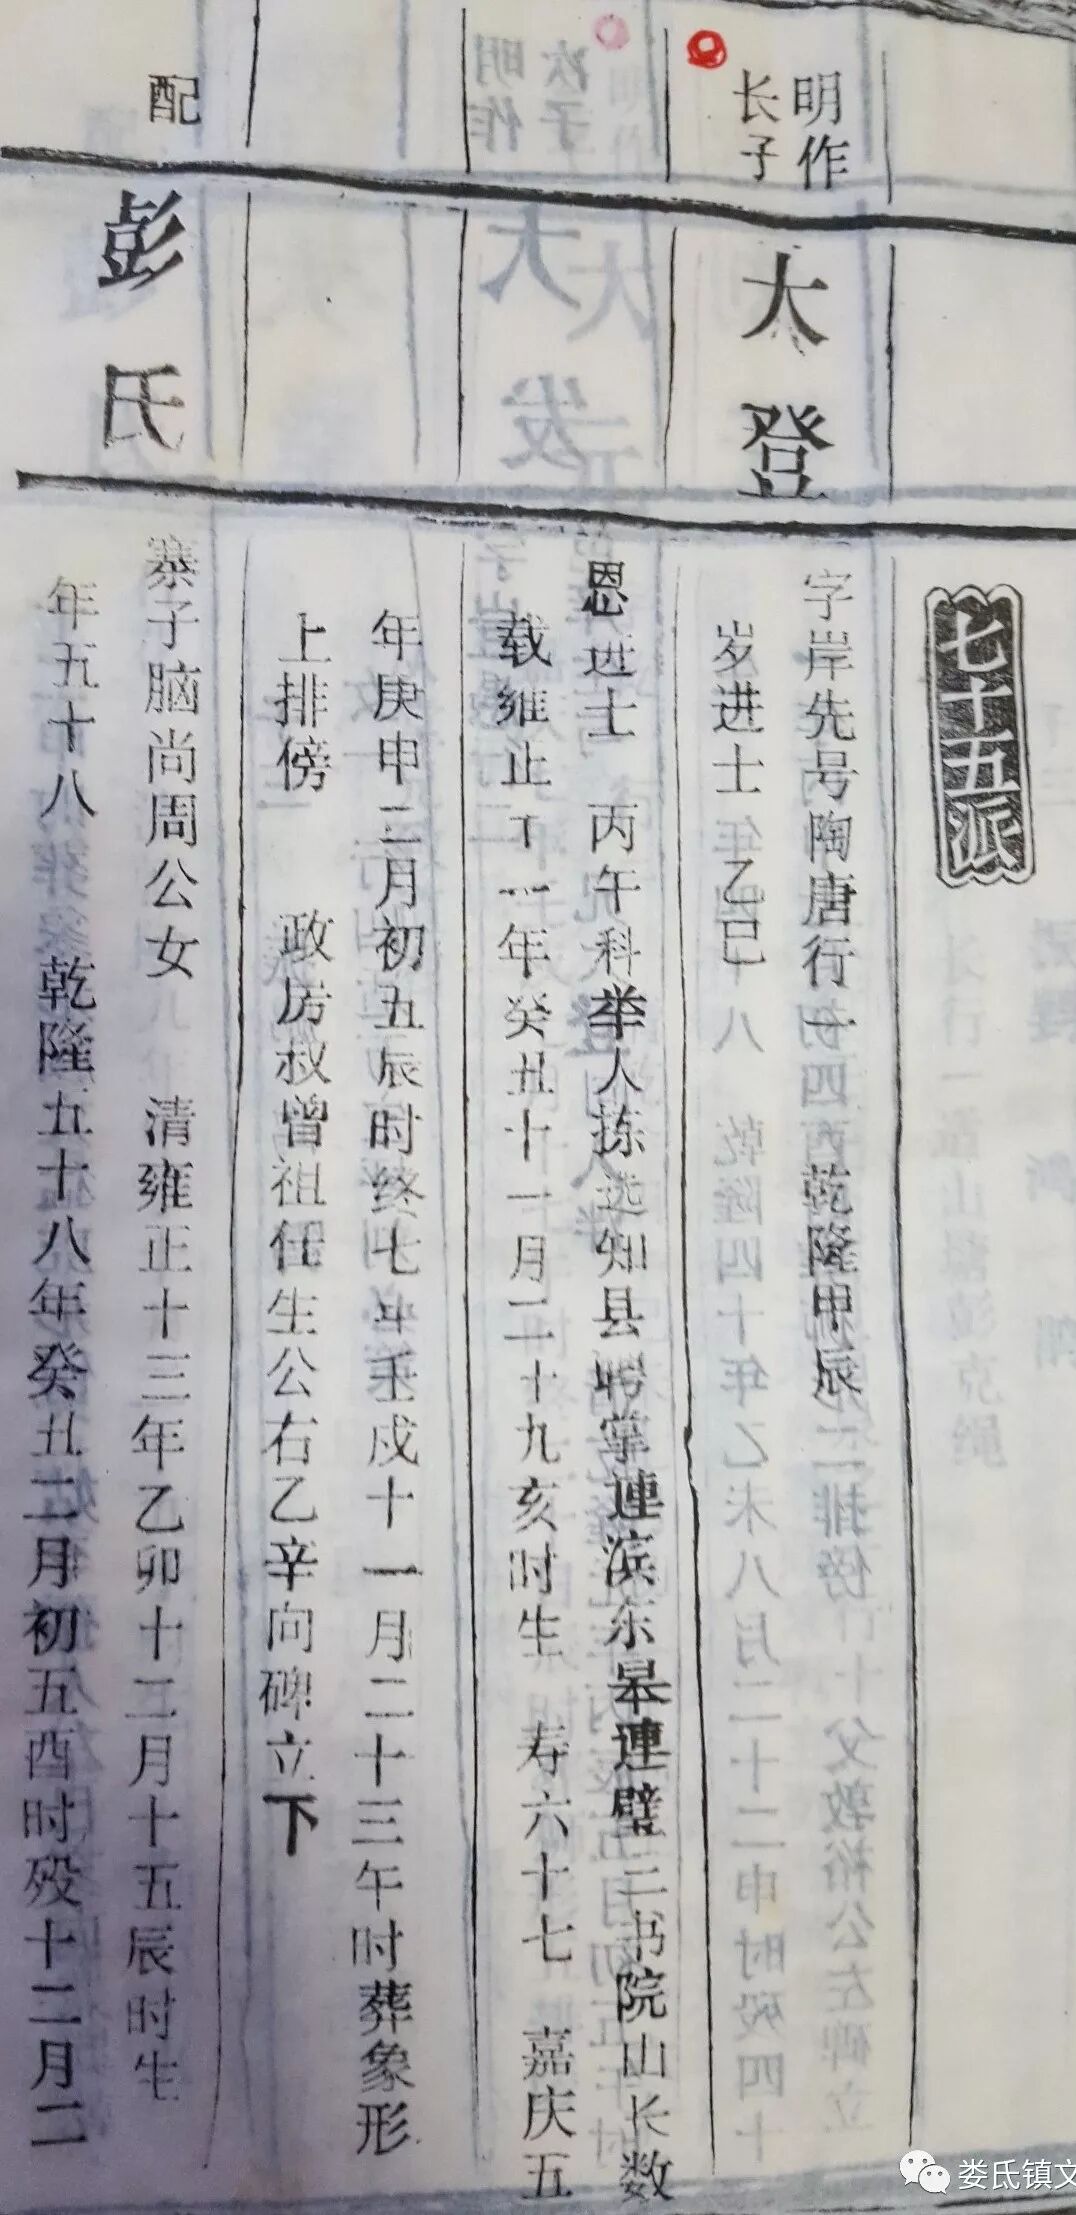 七十五派
明作
长子
太登
字岸先号陶唐行一 乾隆甲辰
岁进士 乙巳
恩进士 丙午科举人拣选知县聘掌連滨东皋連璧二书院山长数
载雍正十一年癸丑十一月二十九亥时生 寿六十七 嘉庆五
年庚申二月初五辰时终七年壬戌十一月二十三午时葬象形
上排傍 政房叔曾祖任生公右乙辛向碑立下
配
彭氏
寨子脑尚周公女 清雍正十三年乙卯十二月十五辰时生
年五十八 乾隆五十八年癸丑二月初五酉时殁十二月二
娄氐镇文